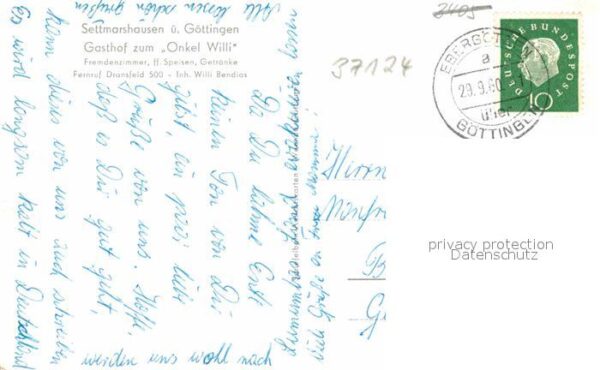 Settmarshausen ü. Göttingen
Gasthof zum „Onkel Willi"
Fremdenzimmer, ff. Speisen, Getränke
Fernruf Dransfeld 500 - Inh. Willi Bendias
3405
37124
DEUTSCHE BUNDESPOST
10
a
29.9.60
über
GÖTTINGEN
Da Du lahme Ente
keinen Ton von Dir
gibst, ein paar liebe
Grüße von uns. Hoffe,
daß es Dir gut geht,
kann dies von uns auch schreiben
Es wird langsam kalt in Deutschland
werden uns wohl noch
Alle lassen schön grüßen
viele Grüße an Frau
Herrn
privacy protection
Datenschutz